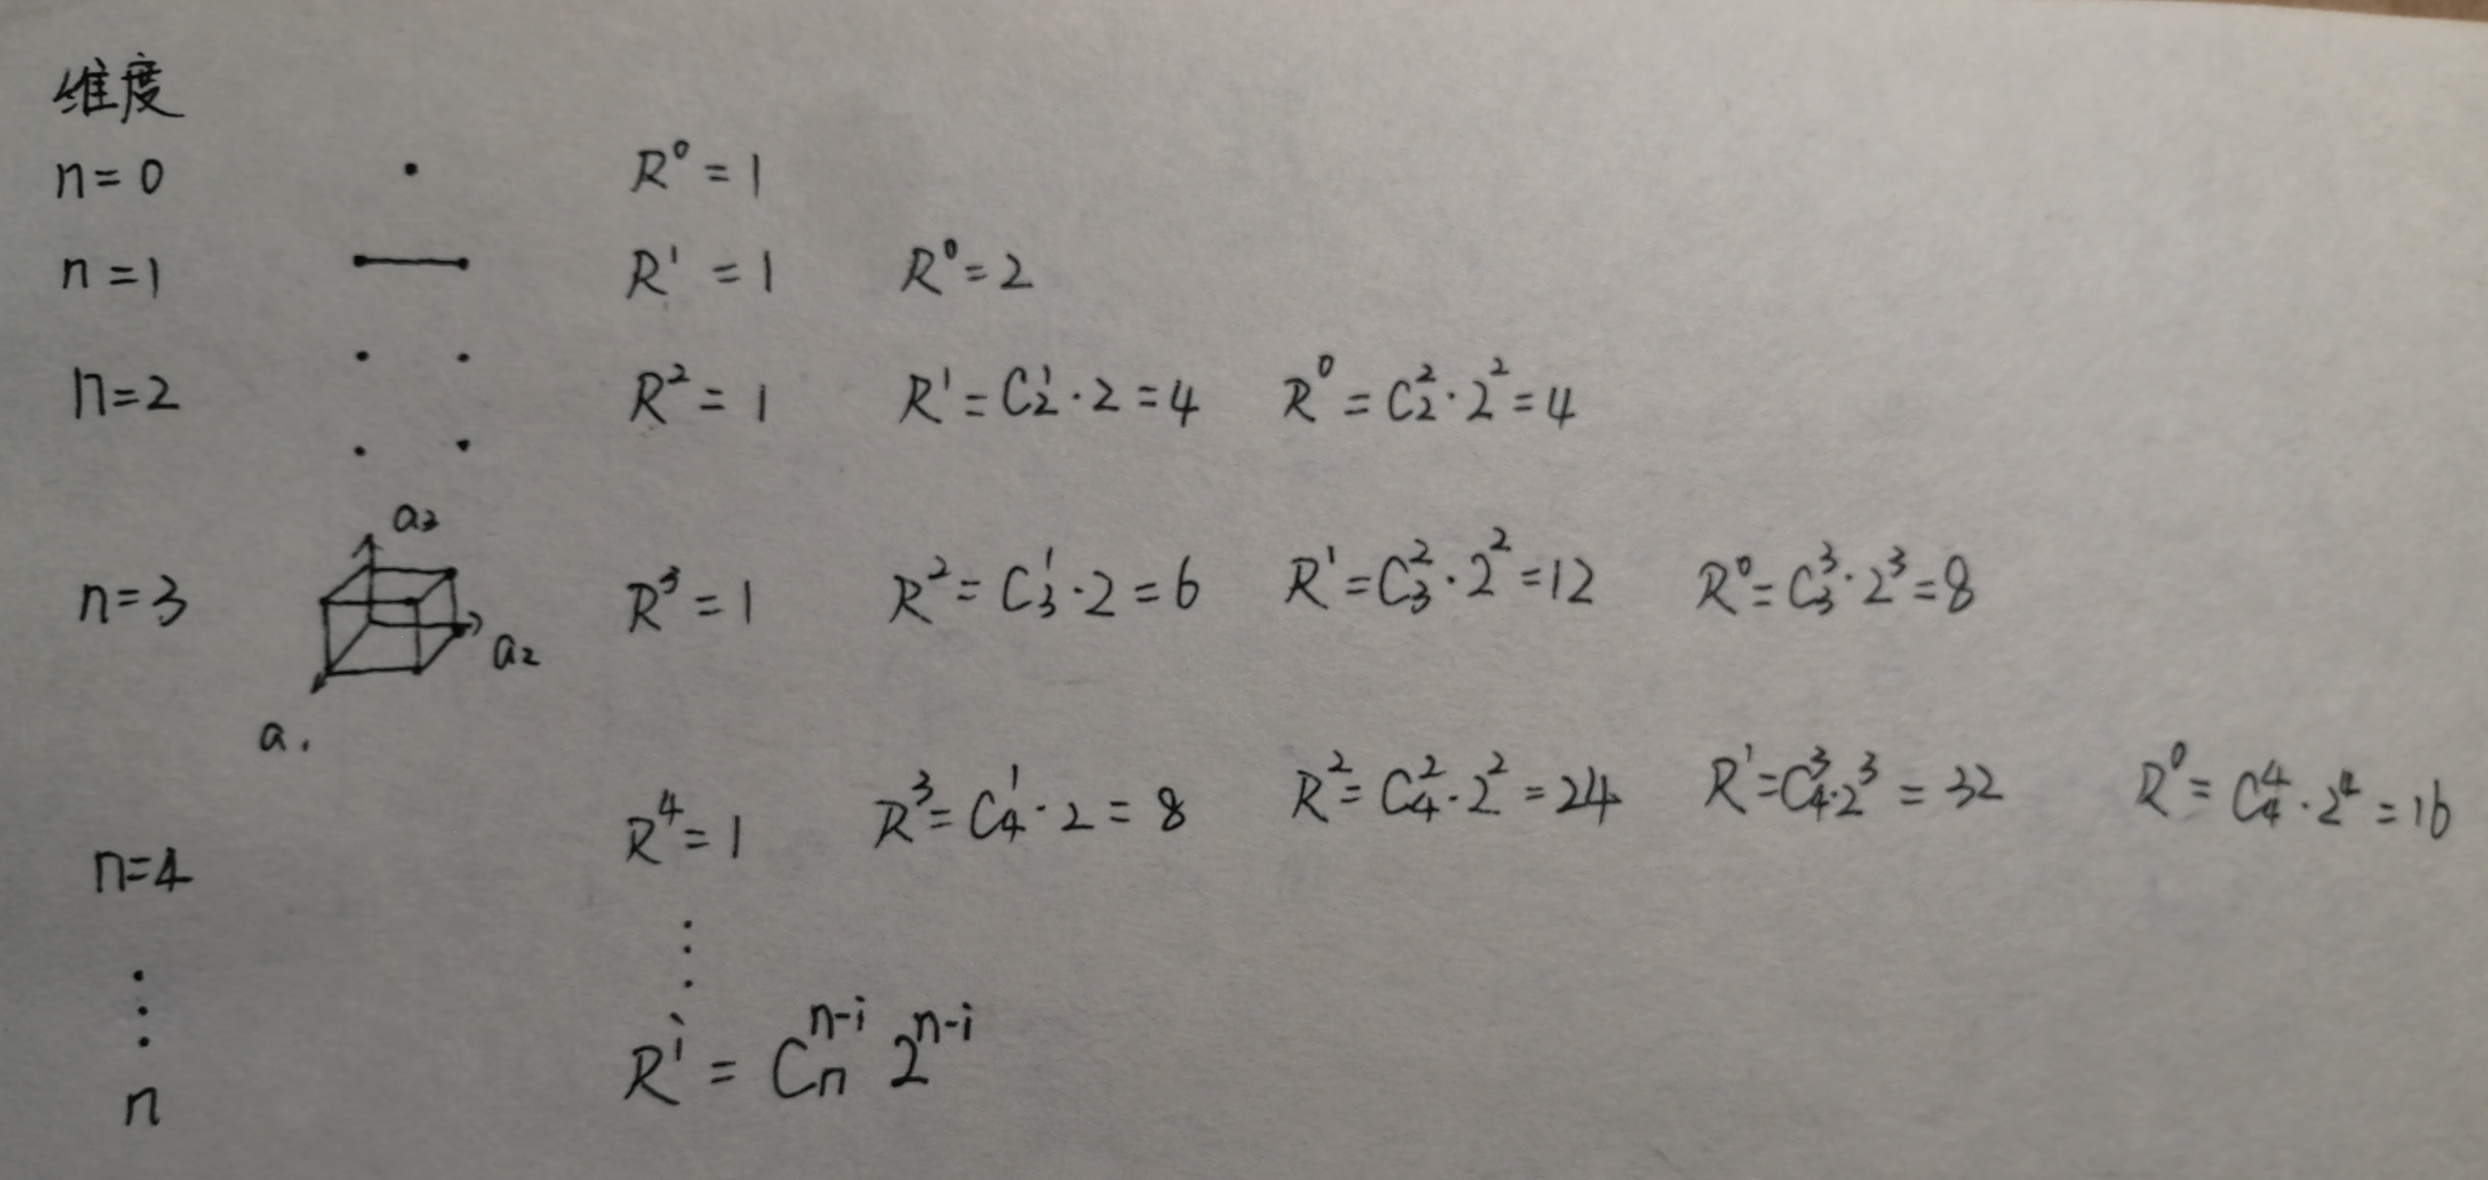 维度
n=0 R⁰=1
n=1 R¹=1 R⁰=2
n=2 R²=1 R¹=C₂¹·2=4 R⁰=C₂²·2²=4
a₃
n=3 R³=1 R²=C₃¹·2=6 R¹=C₃²·2²=12 R⁰=C₃³·2³=8
a₂
a₁
n=4 R⁴=1 R³=C₄¹·2=8 R²=C₄²·2²=24 R¹=C₄³·2³=32 R⁰=C₄⁴·2⁴=16
⋮ ⋮
n Rⁱ=Cₙⁿ⁻ⁱ 2ⁿ⁻ⁱ